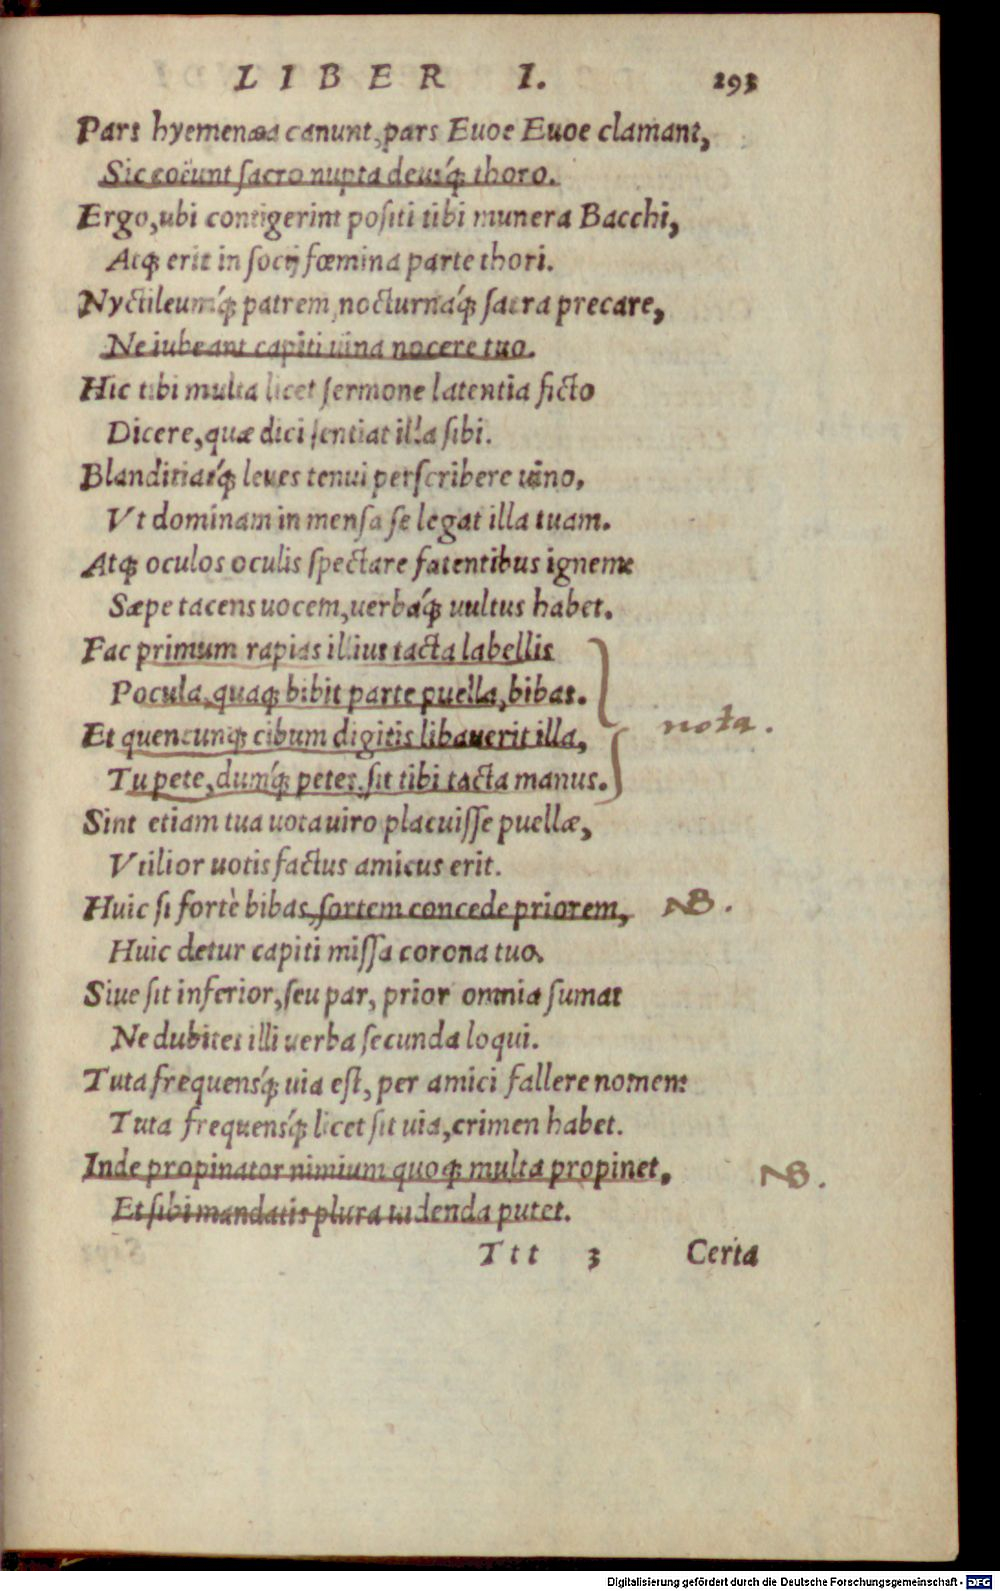 LIBER I. 293
Pars hyemenæa canunt, pars Euoe Euoe clamant,
Sic coëunt sacro nupta deusq́; thoro.
Ergo, ubi contigerint positi tibi munera Bacchi,
Atq; erit in socij fœmina parte thori.
Nyctileumq́; patrem, nocturnaq́; sacra precare,
Ne iubeant capiti uina nocere tuo.
Hic tibi multa licet sermone latentia ficto
Dicere, quæ dici sentiat illa sibi.
Blanditiasq́; leues tenui perscribere uino,
Vt dominam in mensa se legat illa tuam.
Atq; oculos oculis spectare fatentibus ignem:
Sæpe tacens uocem, uerbaq́; uultus habet.
Fac primum rapias illius tacta labellis
Pocula, quaq; bibit parte puella, bibas.
Et quencunq; cibum digitis libauerit illa,
nota.
Tu pete, dumq́; petes, sit tibi tacta manus.
Sint etiam tua uota uiro placuisse puellæ,
Vtilior uotis factus amicus erit.
Huic si fortè bibas, sortem concede priorem, NB.
Huic detur capiti missa corona tuo.
Siue sit inferior, seu par, prior omnia sumat
Ne dubites illi uerba secunda loqui.
Tuta frequensq́; uia est, per amici fallere nomen:
Tuta frequensq́; licet sit uia, crimen habet.
Inde propinator nimium quoq; multa propinet, NB.
Et sibi mandatis plura uidenda putet.
Ttt 3 Certa
Digitalisierung gefördert durch die Deutsche Forschungsgemeinschaft - DFG